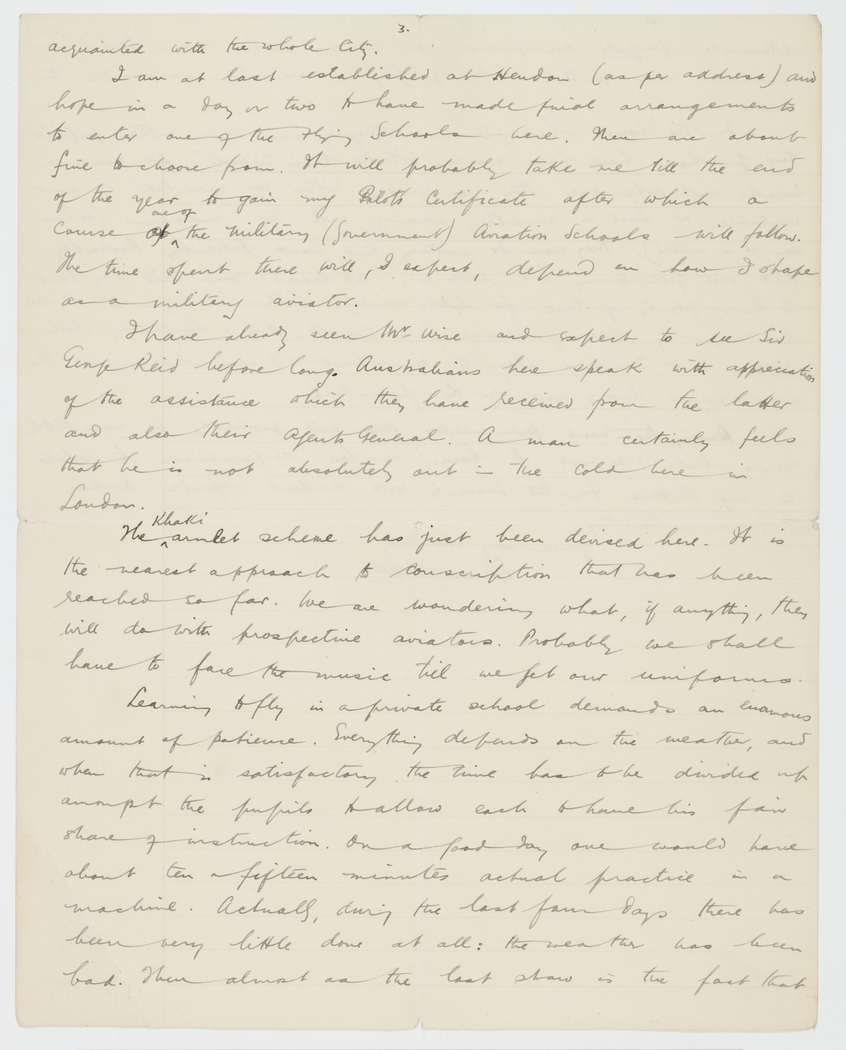 3.
acquainted with the whole City.
I am at last established at Hendon (as per address) and
hope in a day or two to have made final arrangements
to enter one of the Flying Schools here. There are about
five to choose from. It will probably take me till the end
of the year to gain my Pilots Certificate after which a
course at one of the Military (Government) Aviation Schools will follow.
The time spent there will, I expect, depend on how I shape
as a military aviator.
I have already seen Mr. Wise and expect to see Sir
George Reid before long. Australians here speak with appreciation
of the assistance which they have received from the latter
and also their Agents General. A man certainly feels
that he is not absolutely out in the cold here in
London.
The Khaki armlet scheme has just been devised here. It is
the nearest approach to conscription that has been
reached so far. We are wondering what, if anything, they
will do with prospective aviators. Probably we shall
have to face the music till we get our uniforms.
Learning to fly in a private school demands an enamous
amount of patience. Everything depends on the weather, and
when that is satisfactory the time has to be divided up
amongst the pupils to allow each to have his fair
share of instruction. On a good day one would have
about ten or fifteen minutes actual practice in a
machine. Actually, during the last four days there has
been very little done at all: the weather has been
bad. Then almost as the last straw is the fact that